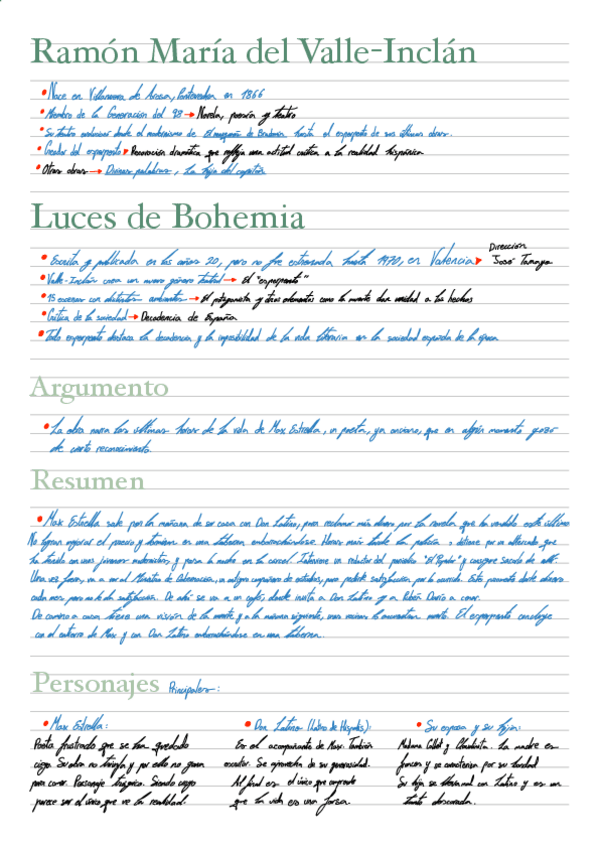 Ramón María del Valle-Inclán
Nace en Villanueva de Arosa, Pontevedra en 1866
Miembro de la Generación del 98 → Novela, poesía y teatro
Su teatro evoluciona desde el modernismo de El marqués de Bradomín hasta el esperpento de sus últimas obras.
Creador del esperpento → Renovación dramática que refleja una actitud crítica a la realidad hispánica
Otras obras → Divinas palabras, La hija del capitán
Luces de Bohemia
Dirección
Escrita y publicada en los años 20, pero no fue estrenada hasta 1970, en Valencia → José Tamayo
Valle-Inclán crea un nuevo género teatral → El "esperpento"
15 escenas con distintos ambientes → El protagonista y otros elementos como la muerte dan unidad a los hechos
Crítica de la sociedad → Decadencia de España
Todo esperpento destaca la decadencia y la imposibilidad de la vida literaria en la sociedad española de la época
Argumento
La obra narra las últimas horas de la vida de Max Estrella, un poeta, ya anciano, que en algún momento gozó
de cierto reconocimiento.
Resumen
Max Estrella sale por la mañana de su casa con Don Latino, para reclamar más dinero por la novela que ha vendido este último
No logran mejorar el precio y terminan en una taberna emborrachándose. Horas más tarde la policía, detiene por un altercado que
ha tenido con unos jóvenes modernistas, y pasa la noche en la cárcel. Interviene un redactor del periódico "El Popular" y consigue sacarlo de allí.
Una vez fuera, va a ver al Ministro de Gobernación, un antiguo compañero de estudios, para pedirle satisfacción por lo ocurrido. Este promete darle dinero
cada mes para la satisfacción. De allí se va a un café, donde invita a Don Latino y a Rubén Darío a cenar.
De camino a casa tiene una visión de la muerte y a la mañana siguiente, unas vecinas lo encuentran muerto. El esperpento concluye
con el entierro de Max y con Don Latino emborrachándose en una taberna.
Personajes Principales:
Max Estrella:
Poeta frustrado que se ha quedado
ciego. Su don no triunfa y por ello no gana
para comer. Personaje trágico. Siendo ciego
parece ser el único que ve la realidad.
Don Latino (Latino de Hispalis):
Es el acompañante de Max. También
escritor. Se aprovecha de su generosidad.
Al final es el único que comprende
que la vida es una farsa.
Su esposa y su hija:
Madame Collet y Claudinita. La madre es
francesa y se caracteriza por su bondad
Su hija se lleva mal con Latino y es un
tanto descarada.